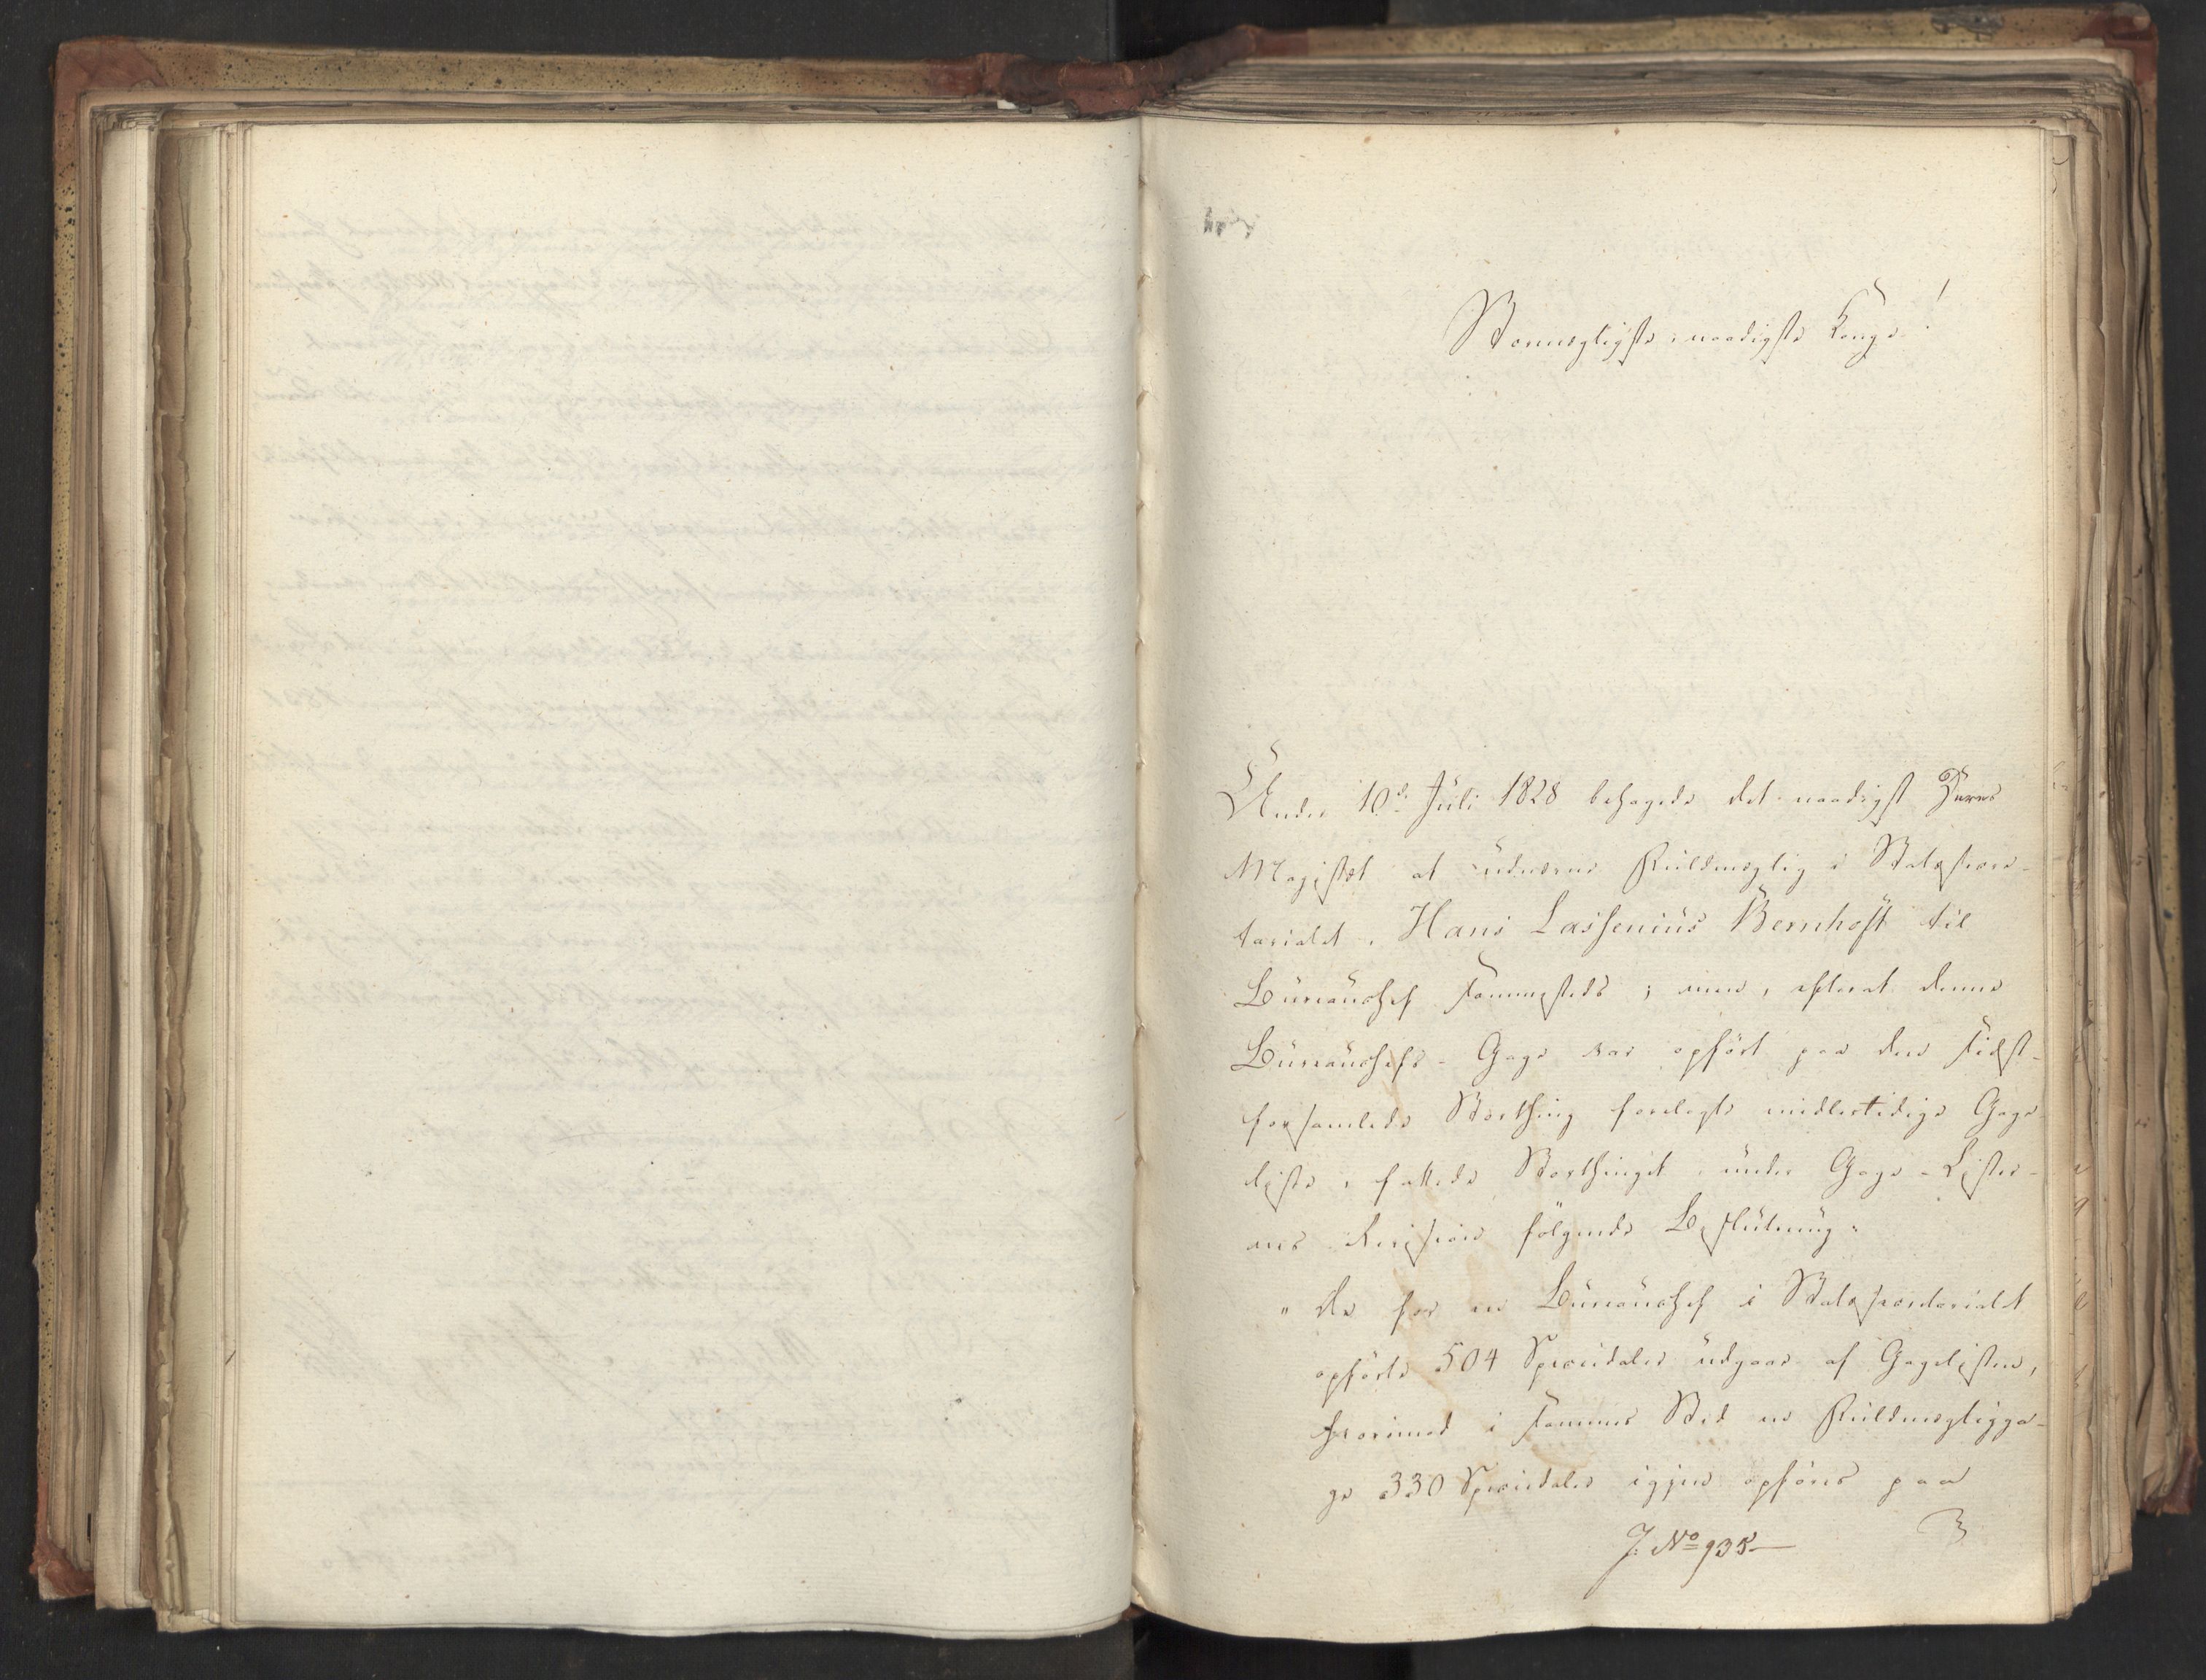 Stormægtigste, naadigste Konge!
Under 10de Juli 1828 behagede det naadigst Deres
Majestæt at udnævne Fuldmægtig i Statssecre-
tariatet, Hans Lassenius Bernhoft til
Bureauchef sammesteds; men, efterat denne
Bureauchefs-Gage var opført paa den sidst-
forsamlede Storthing forelagte midlertidige Gage-
liste, fattede Storthinget under Gage-Lister-
nes Revision følgende Beslutning:
"De for en Bureauchef i Statssecretariatet
opførte 504 Speciedaler udgaae af Gagelisten,
hvorimod i sammes Sted en Fuldmægtigga-
ge 330 Speciedaler igjen opføres paa
J. No 935